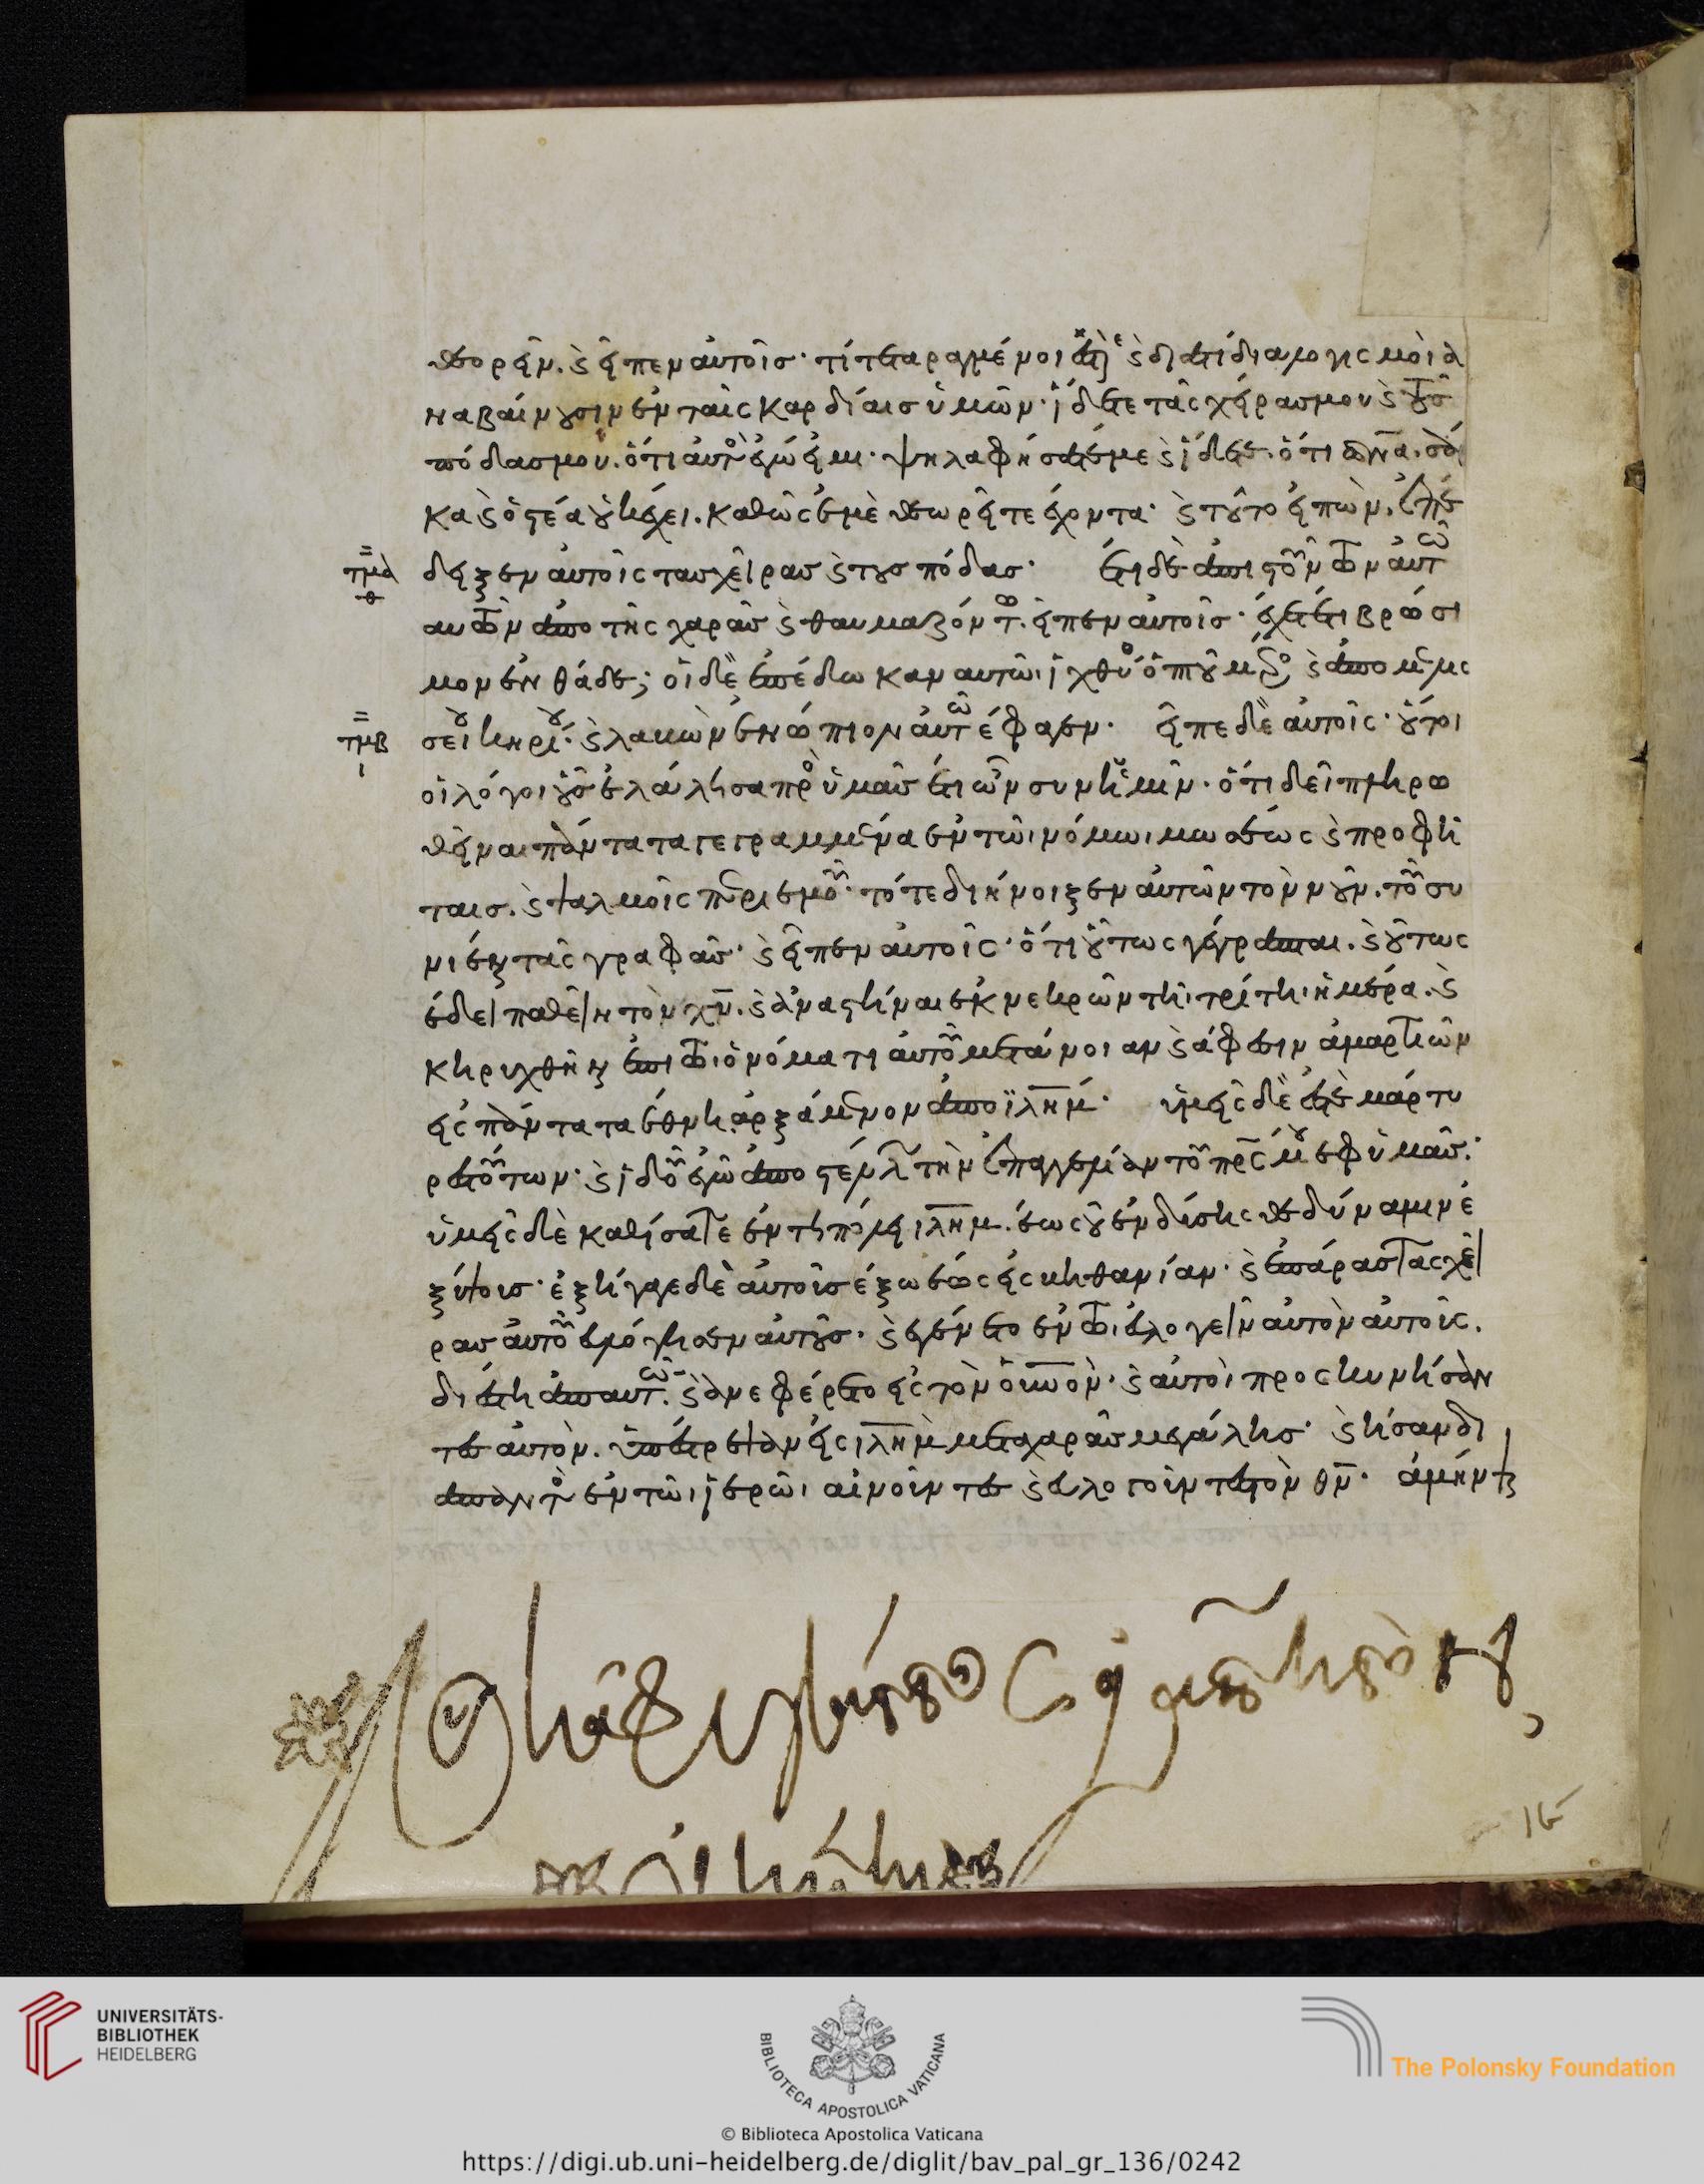 θεορεῖν. καὶ εἶπεν αὐτοῖσ· τί τεταραγμένοι ἐστὲ καὶ διατί διαλογισμοὶ ἀ
ναβαίνουσιν ἐν ταῖς καρδίαισ ὑμῶν· ἴδετε τὰς χεῖρασ μου καὶ τοὺσ
πόδασ μου. ὅτι αὐτὸς ἐγώ εἰμι· ψηλαφήσατέ με καὶ ἴδετε. ὅτι πνᾶ. σάρ
κα καὶ ὀστέα οὐκ ἔχει. καθὼς ἐμὲ θεωρεῖτε ἔχοντα· καὶ τοῦτο εἰπὼν. ἐπέ
τμα δειξεν αὐτοῖς τασ χεῖρασ καὶ τουσ πόδασ· ἔτι δὲ ἀπιστούντων αὐτῶ
θ αυτῶν ἀπὸ τῆς χαρᾶσ καὶ θαυμαζόντων. εἶπεν αὐτοῖσ· ἔχετέ τι βρώσι
μον ἐνθάδε; οἱ δὲ ἐπέδωκαν αυτῶι ἰχθύος ὀπτοῦ μέρος καὶ ἀπὸ μελις
τμβ σείου κηρίου· καὶ λαβὼν ἐνώπιον αὐτῶ ἔφαγεν. εἶπε δὲ αὐτοῖς· οὗτοι
ι οἱ λόγοι οὓσ ἐλάλησα πρὸς ὑμᾶσ ἔτι ὢν συν ἡμῖν· ὅτι δεῖ πληρω
θεῖναι πάντα τα γεγραμμένα ἐν τῶι νόμωι μωσέως καὶ προφή
ταισ. καὶ ψαλμοῖς περι ἐμοῦ· τότε διήνοιξεν αὐτῶν τὸν νοῦν. τοῦ συ
νιέναι τὰς γραφάσ· καὶ εἶπεν αὐτοῖς· ὅτι οὕτως γέγραπται. καὶ οὕτως
ἔδει παθεῖν τὸν χν. καὶ ἀναστῆναι ἐκ νεκρῶν τῆι τρίτηι ἡμέρα. καὶ
κηρυχθῆναι ἐπὶ τῶι ὀνόματι αὐτοῦ μετάνοιαν καὶ ἄφεσιν ἁμαρτιῶν
εἰς πάντα τα ἔθνη ἀρξάμενον ἀπὸ ϊλημ. ὑμεῖς δέ ἐστε μάρτυ
ρες τούτων· καὶ ἰδοῦ ἐγὼ ἀποστέλλω τὴν ἐπαγγελίαν τοῦ πρς μου ἐφ ὑμᾶσ·
ὑμεῖς δὲ καθίσατε ἐν τη πόλει ιλημ. ἕως οὗ ἐνδύσησθε δύναμιν ἐ
ξ ὕψουσ· ἐξήγαγε δὲ αὐτοὺσ ἔξω ἕως εἰς βηθανίαν· καὶ ἐπάρασ τας χεῖ
ρασ αὐτοῦ εὐλόγησεν αὐτούσ. καὶ ἐγένετο ἐν τῶι εὐλογεῖν αὐτὸν αὐτοὺς.
διέστη ἀπ αυτῶν. καὶ ἀνεφέρετο εἰς τὸν οὐνον. καὶ αὐτοὶ προσκυνήσαν
τες αὐτὸν. ὑπέστρεψαν εἰς ιλημ μετα χαρᾶσ μεγάλησ· καὶ ἦσαν δι
απαντὸς ἐν τῶι ἱερῶι αἰνοῦντες καὶ εὐλογοῦντες τὸν θν. ἀμήν
UNIVERSITÄTS-
BIBLIOTHEK
HEIDELBERG
BIBLIOTECA APOSTOLICA VATICANA
The Polonsky Foundation
© Biblioteca Apostolica Vaticana
https://digi.ub.uni-heidelberg.de/diglit/bav_pal_gr_136/0242